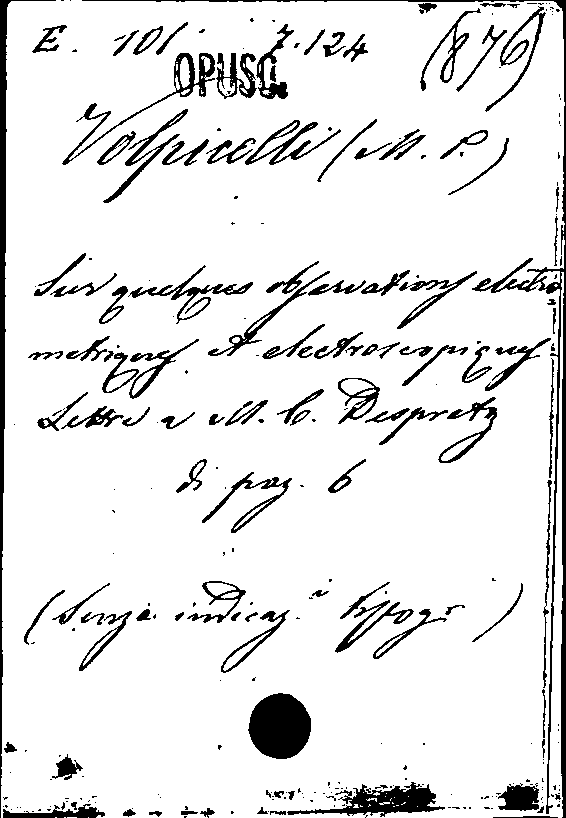 E. 101. 7.124 (876)
OPUSC.
Volpicelli (M. P.)
Sur quelques observations electro
metriques et electroscopiques
Lettre a M. C. Despretz
di pag. 6
(Senza indicaz.i tipogr)